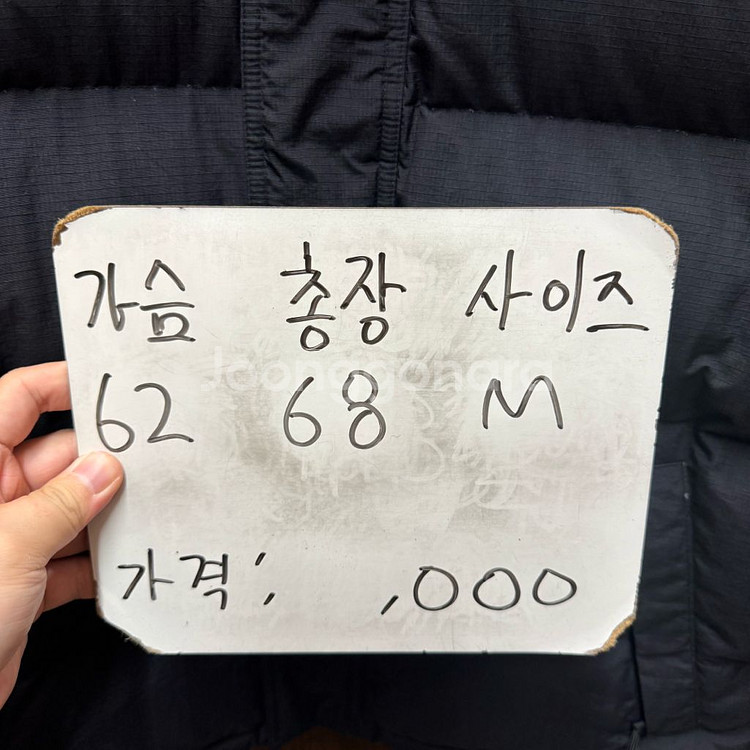 가슴 총장 사이즈
62 68 M
가격: ,000
Joonggonara